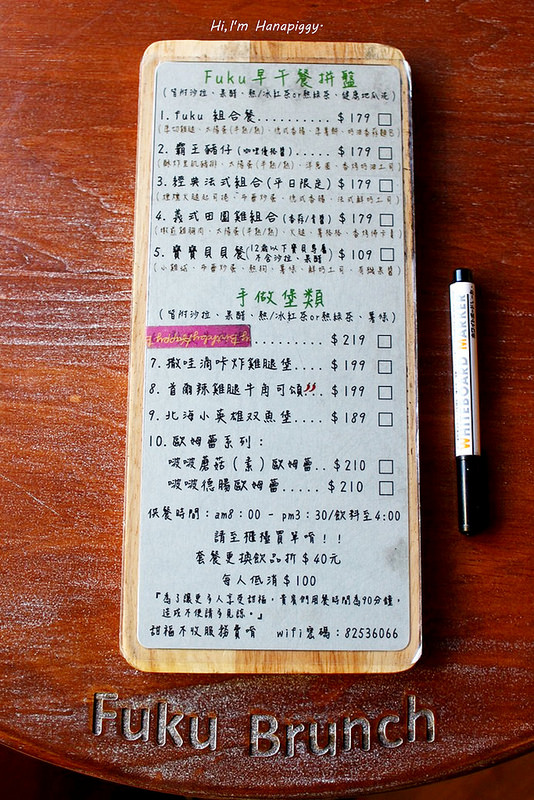 Hi, I'm Hanapiggy.
Fuku早午餐拼盤
(皆附沙拉、果醋、熱/冰紅茶or熱綠茶、健康地瓜泥)
1. fuku 組合餐.......... $179
2. 霸王豬仔(咖哩優格醬)..... $179
3. 經典法式組合(平日限定) $179
4. 義式田園雞組合(香蒜/青醬) $179
5. 寶寶貝貝餐(12歲以下寶貝專屬 不含沙拉、果醋) $109
手做堡類
(皆附沙拉、果醋、熱/冰紅茶or熱綠茶、薯條)
......... $219
7. 撒哇滴咔炸雞腿堡.... $199
8. 首爾辣雞腿牛肉可頌... $199
9. 北海小英雄双魚堡.... $189
10. 歐姆蕾系列:
啵啵蘑菇(素)歐姆蕾.. $210
啵啵德腸歐姆蕾..... $210
供餐時間:am8:00 - pm3:30/飲料至4:00
請至櫃檯買單唷!!
套餐更換飲品折$40元
每人低消$100
『為了讓更多人享受甜福,貴賓們用餐時間為90分鐘,
造成不便請多見諒。』
甜福不收服務費唷 wifi密碼:82536066
WHITEBOARD MARKER
Fuku Brunch